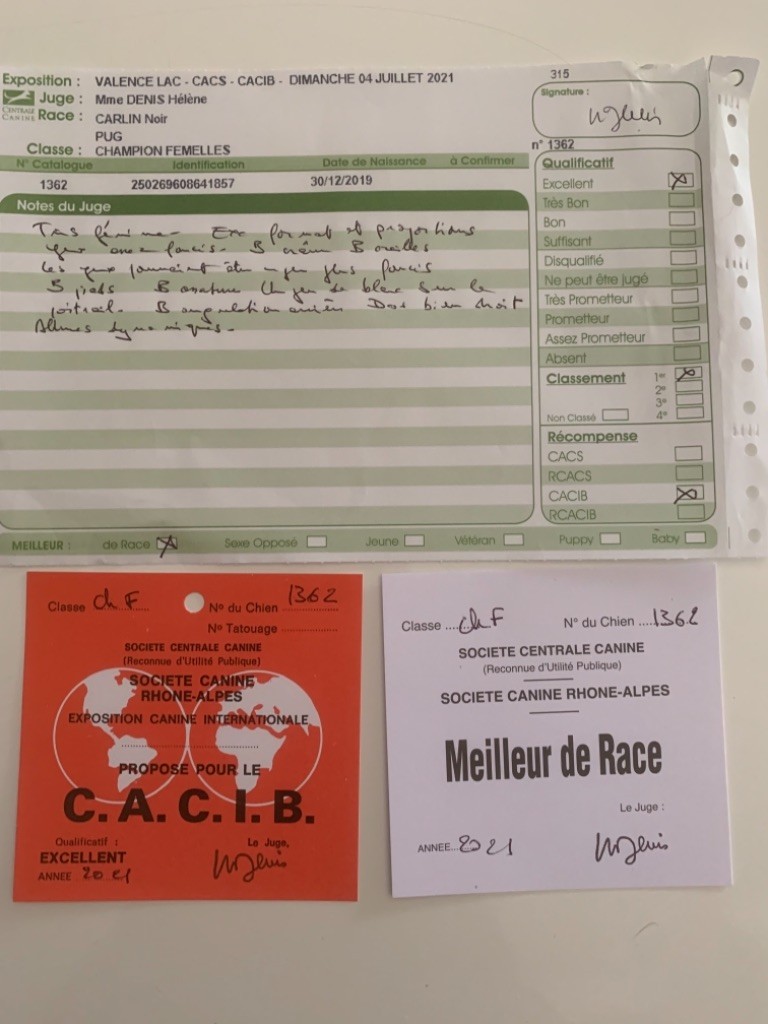 315
Exposition : VALENCE LAC - CACS - CACIB - DIMANCHE 04 JUILLET 2021
Juge : Mme DENIS Hélène
CENTRALE CANINE
Race : CARLIN Noir
PUG
Classe : CHAMPION FEMELLES
Signature :
n° 1362
N° Catalogue Identification Date de Naissance à Confirmer
1362 250269608641857 30/12/2019
Notes du Juge
Très Exc format et proportions
B crâne B oreilles
Les yeux pourraient être un peu plus foncés
B pieds B ossature Un peu de blanc sur le
poitrail. B angulation Dos bien droit
Allures dynamiques.
Qualificatif
Excellent
Très Bon
Bon
Suffisant
Disqualifié
Ne peut être jugé
Très Prometteur
Prometteur
Assez Prometteur
Absent
Classement 1er
2e
3e
Non Classé 4e
Récompense
CACS
RCACS
CACIB
RCACIB
MEILLEUR : de Race Sexe Opposé Jeune Vétéran Puppy Baby
Classe Ch F N° du Chien 1362
N° Tatouage
SOCIETE CENTRALE CANINE
(Reconnue d'Utilité Publique)
SOCIETE CANINE
RHONE-ALPES
EXPOSITION CANINE INTERNATIONALE
PROPOSÉ POUR LE
C. A. C. I. B.
Qualificatif :
EXCELLENT
ANNEE 2021
Le Juge,
Classe ....Ch F N° du Chien ....1362
SOCIETE CENTRALE CANINE
(Reconnue d'Utilité Publique)
SOCIETE CANINE RHONE-ALPES
Meilleur de Race
Le Juge :
ANNEE...2021